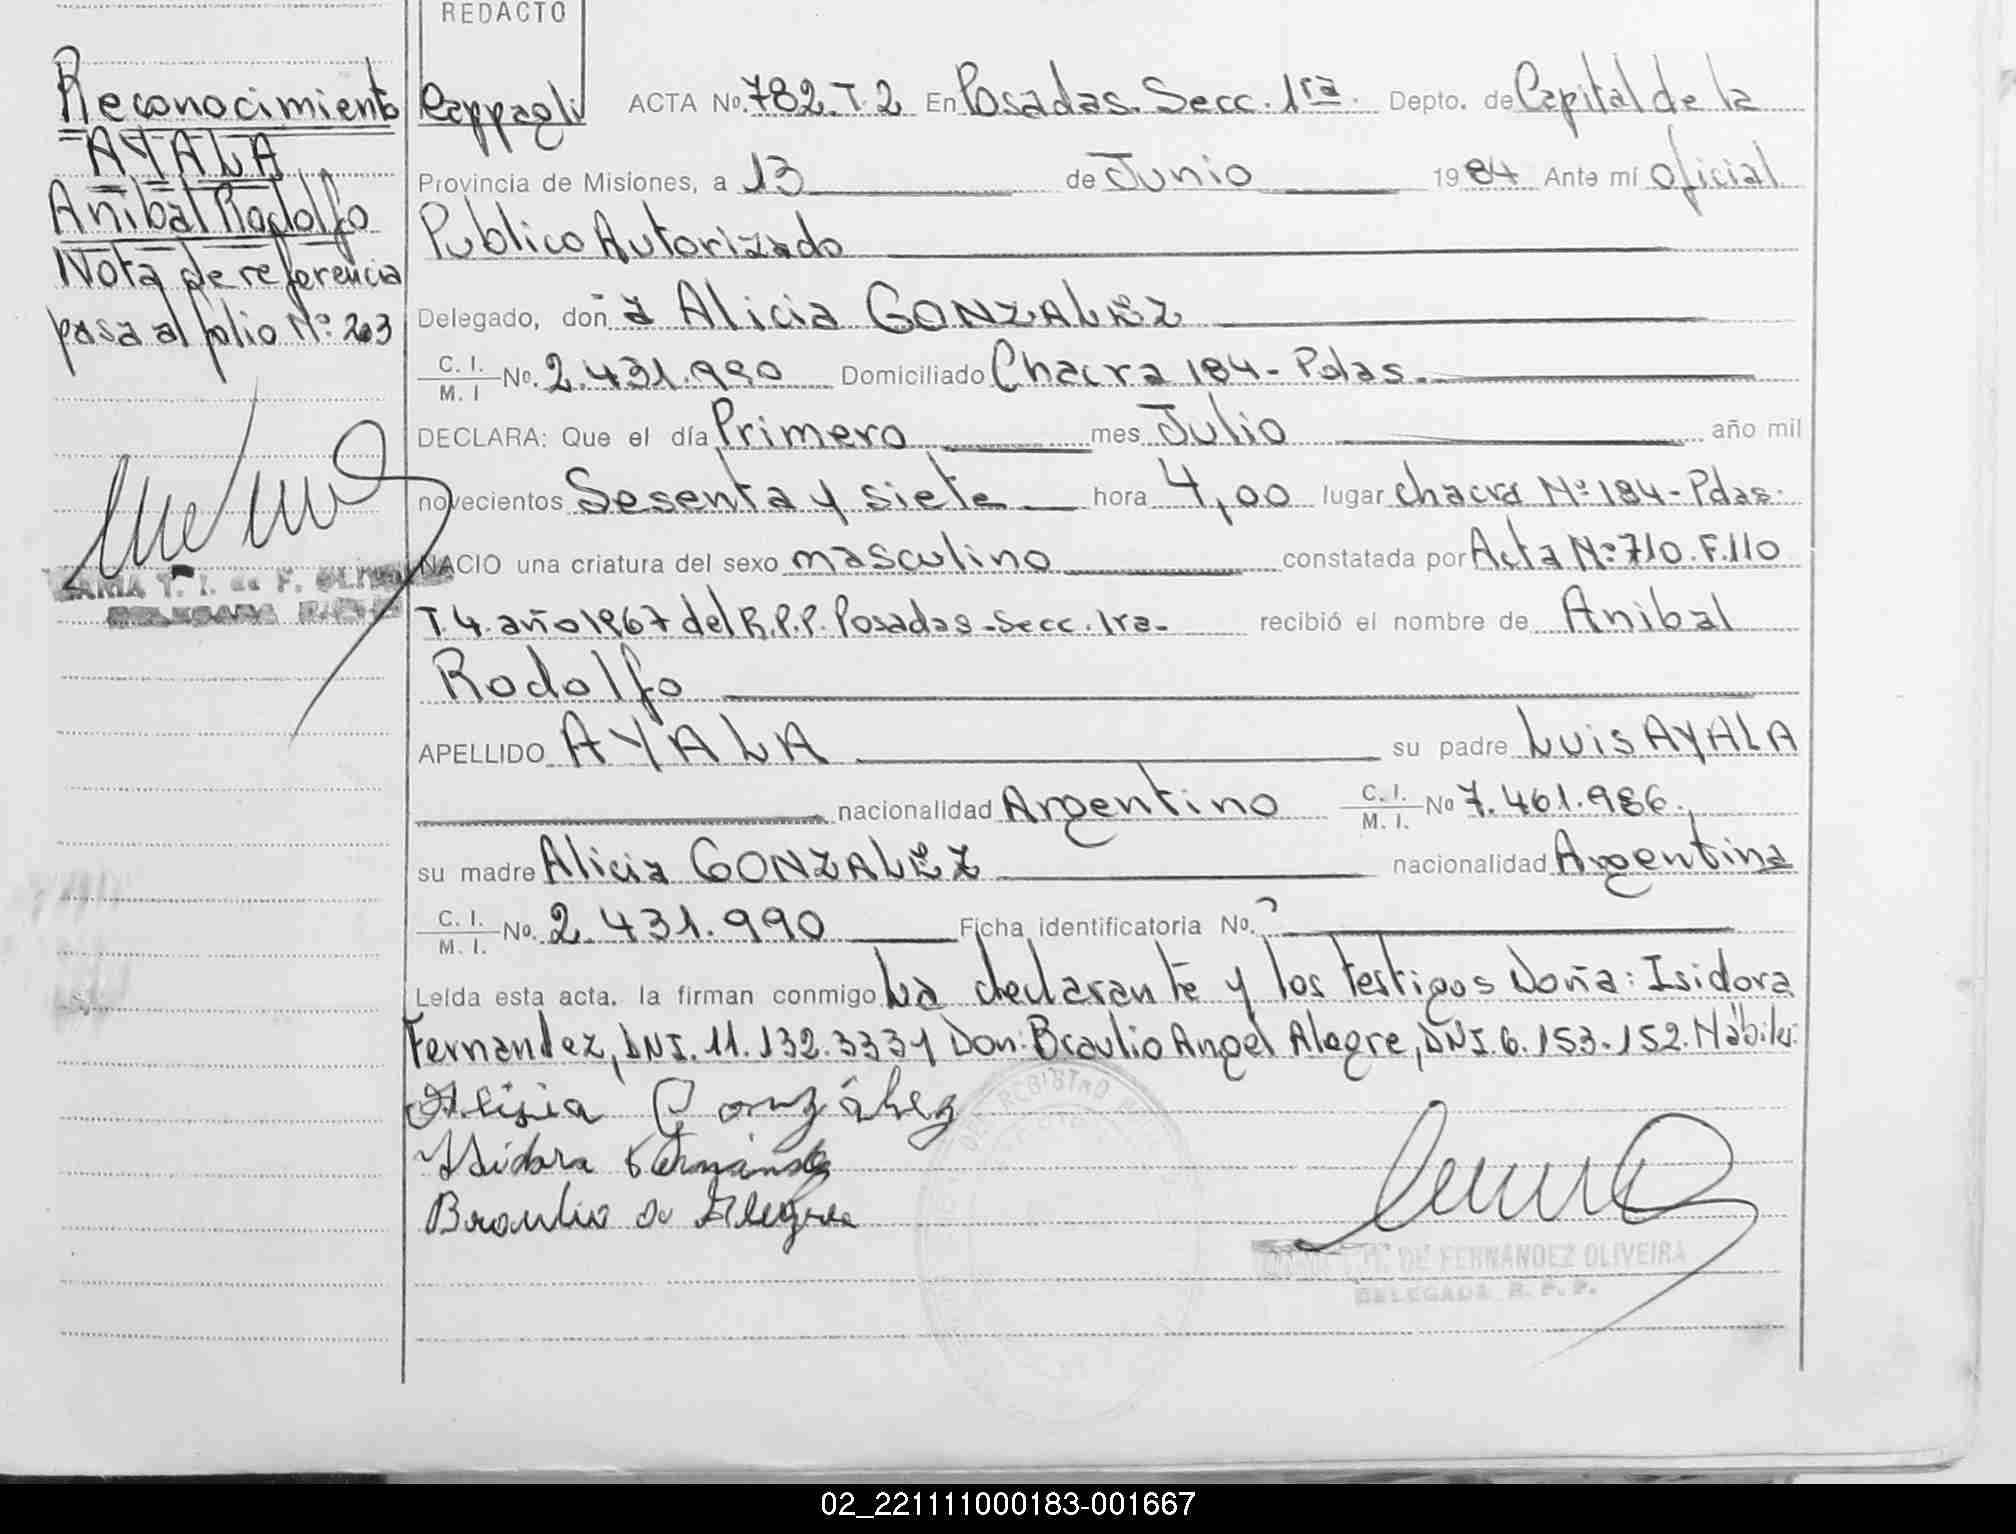 REDACTO
Reconocimiento
AYALA
Anibal Rodolfo
Nota de referencia
pasa al folio Nº 203
Rappagli ACTA No. 782.T.2 En Posadas. Secc. 1ra. Depto. de Capital de la
Provincia de Misiones, a 13 de Junio 1984 Ante mí oficial
Publico Autorizado
Delegado, doña Alicia GONZALEZ
C. I. / M. I No. 2.431.990 Domiciliado Chacra 184 - Pdas.
DECLARA: Que el día Primero mes Julio año mil
novecientos Sesenta y siete hora 4,00 lugar chacra Nº 184 - Pdas.
NACIO una criatura del sexo masculino constatada por Acta Nº 710. F. 110
T. 4. año 1967 del R.P.P. Posadas - Secc. 1ra - recibió el nombre de Anibal
Rodolfo
APELLIDO AYALA su padre Luis AYALA
nacionalidad Argentino C. I. / M. I. No 7.461.986.
su madre Alicia GONZALEZ nacionalidad Argentina
C. I. / M. I. No. 2.431.990 Ficha identificatoria No.
Leída esta acta. la firman conmigo La declarante y los testigos Doña: Isidora
Fernandez, DNI. 11.132.333 y Don: Braulio Angel Alegre, DNI. 6.153.152. Hábiles.
Alisia González
Isidora Fernández
Braulio A Alegre
DE FERNANDEZ OLIVEIRA
DELEGADA R. P. P.
02_221111000183-001667